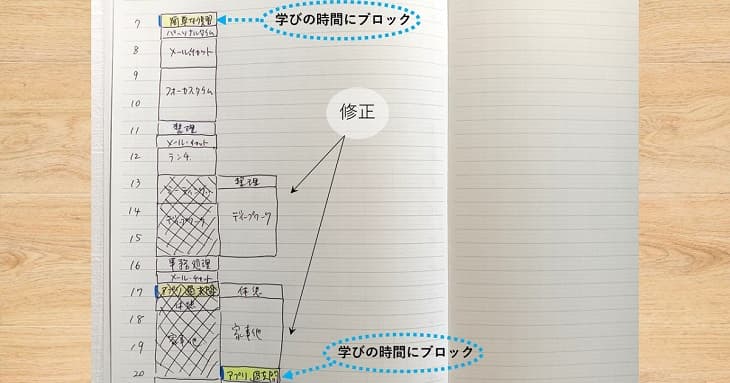 学びの時間にブロック
7 簡単な復習
パーソナルタイム
8 メール・チャット
9
フォーカスタイム
10
11 整理
メール・チャット
12 ランチ
修正
13 ミーティング 整理
14 ディープワーク ディープワーク
15
16 事務処理
メール・チャット
17 アプリ、過去問 休憩
休憩
18
家事他 家事他
19
学びの時間にブロック
20 アプリ、過去問